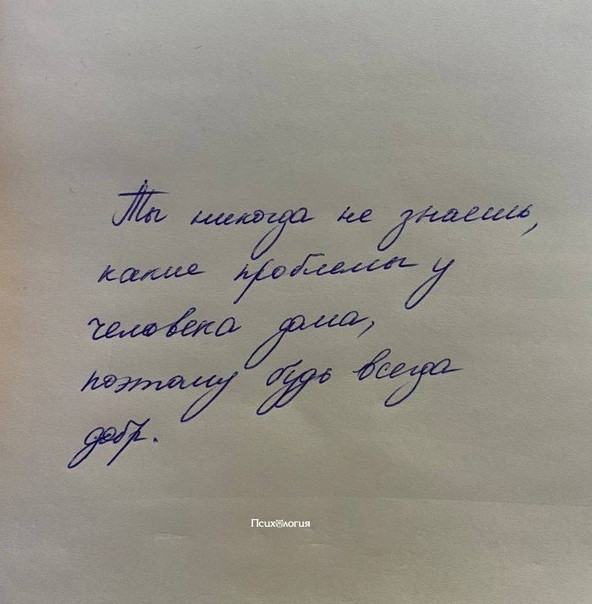 Ты никогда не знаешь,
какие проблемы у
человека дома,
поэтому будь всегда
добр.
Психология